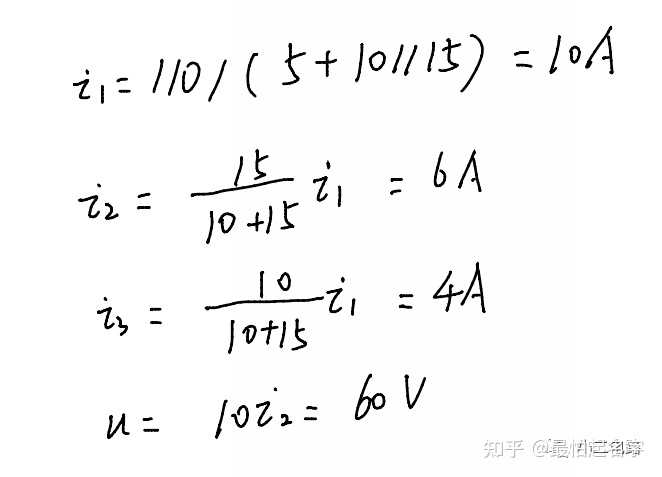 i₁ = 110 / ( 5 + 10 // 15 ) = 10A
i₂ = 15/(10+15) i₁ = 6A
i₃ = 10/(10+15) i₁ = 4A
u = 10i₂ = 60V
知乎 @最怕起名字